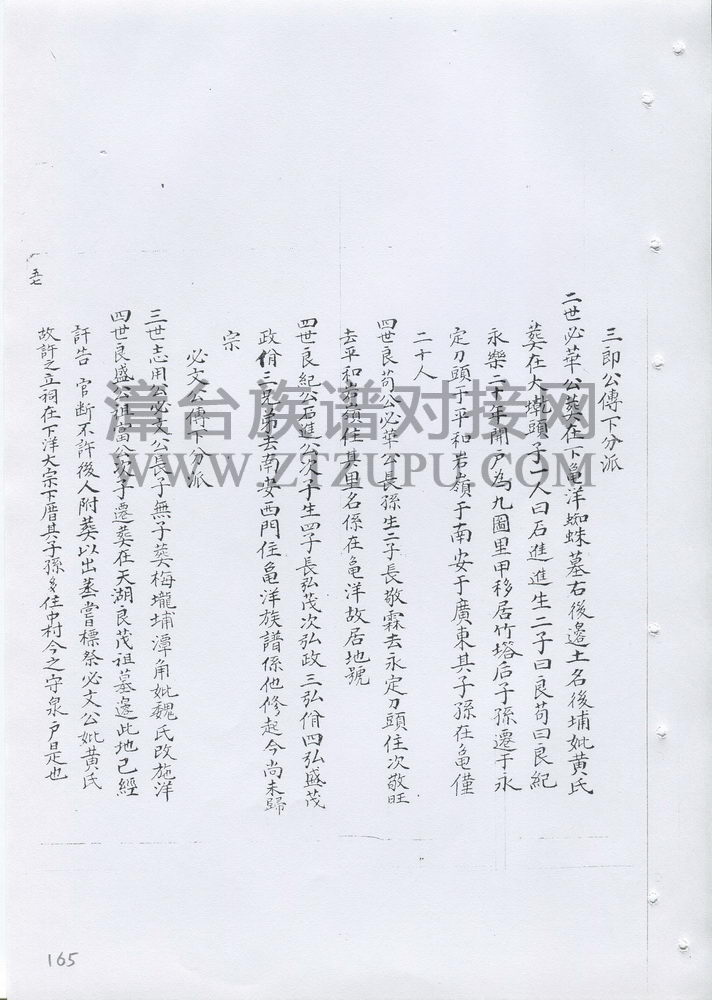 三郎公傳下分派
二世必華公葬在下龜洋蜘蛛墓右後邊土名後埔妣黃氏
葬在大墘頭子一人曰石進進生二子曰良苟曰良紀
永樂二十年開戶為九圖里甲移居竹塔后子孫遷于永
定刀頭于平和岩嶺于南安于廣東其子孫在龜僅
二十人
四世良苟公必華公長孫生二子長敬霖去永定刀頭住次敬旺
去平和岩嶺住其里名係在龜洋故居地號
四世良紀公石進公次子生四子長弘茂次弘政三弘佾四弘盛茂
政佾三兄弟去南安西門住龜洋族譜係他修起今尚未歸
宗
必文公傳下分派
三世志用公必文公長子無子葬梅壠埔潭角妣魏氏改施洋
四世良盛公祖富公次子遷葬在天湖良茂祖墓邊此地已經
訐告官斷不許後人附葬以出蒸嘗標祭必文公妣黃氏
故許之立祠在下洋大宗下厝其子孫多住中村今之守泉戶是也
五七
165
漳台族谱对接网
WWW.ZTZUPU.COM